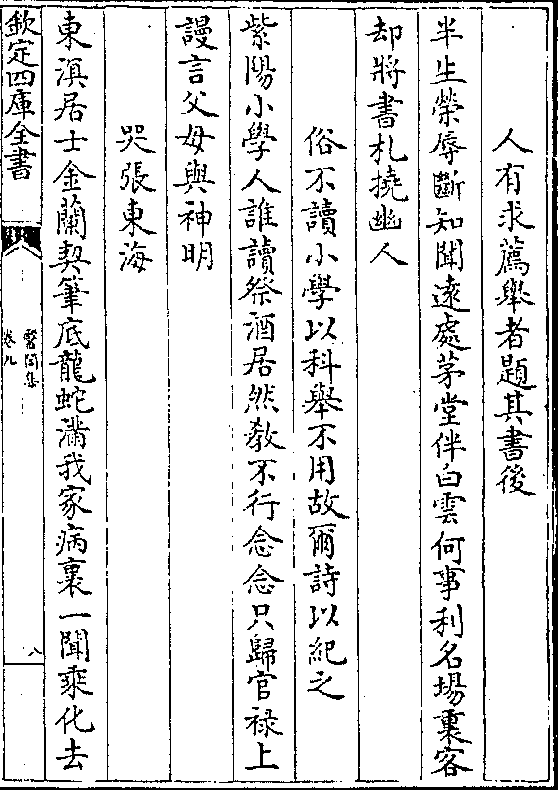 人有求薦舉者題其書後
半生榮辱斷知聞遠處茅堂伴白雲何事利名場裏客
却將書札撓幽人
俗不讀小學以科舉不用故爾詩以紀之
紫陽小學人誰讀祭酒居然教不行念念只歸官禄上
謾言父母與神明
哭張東海
東溟居士金蘭契筆底龍蛇滿我家病裏一聞乘化去
欽定四庫全書
醫閭集
卷九
八